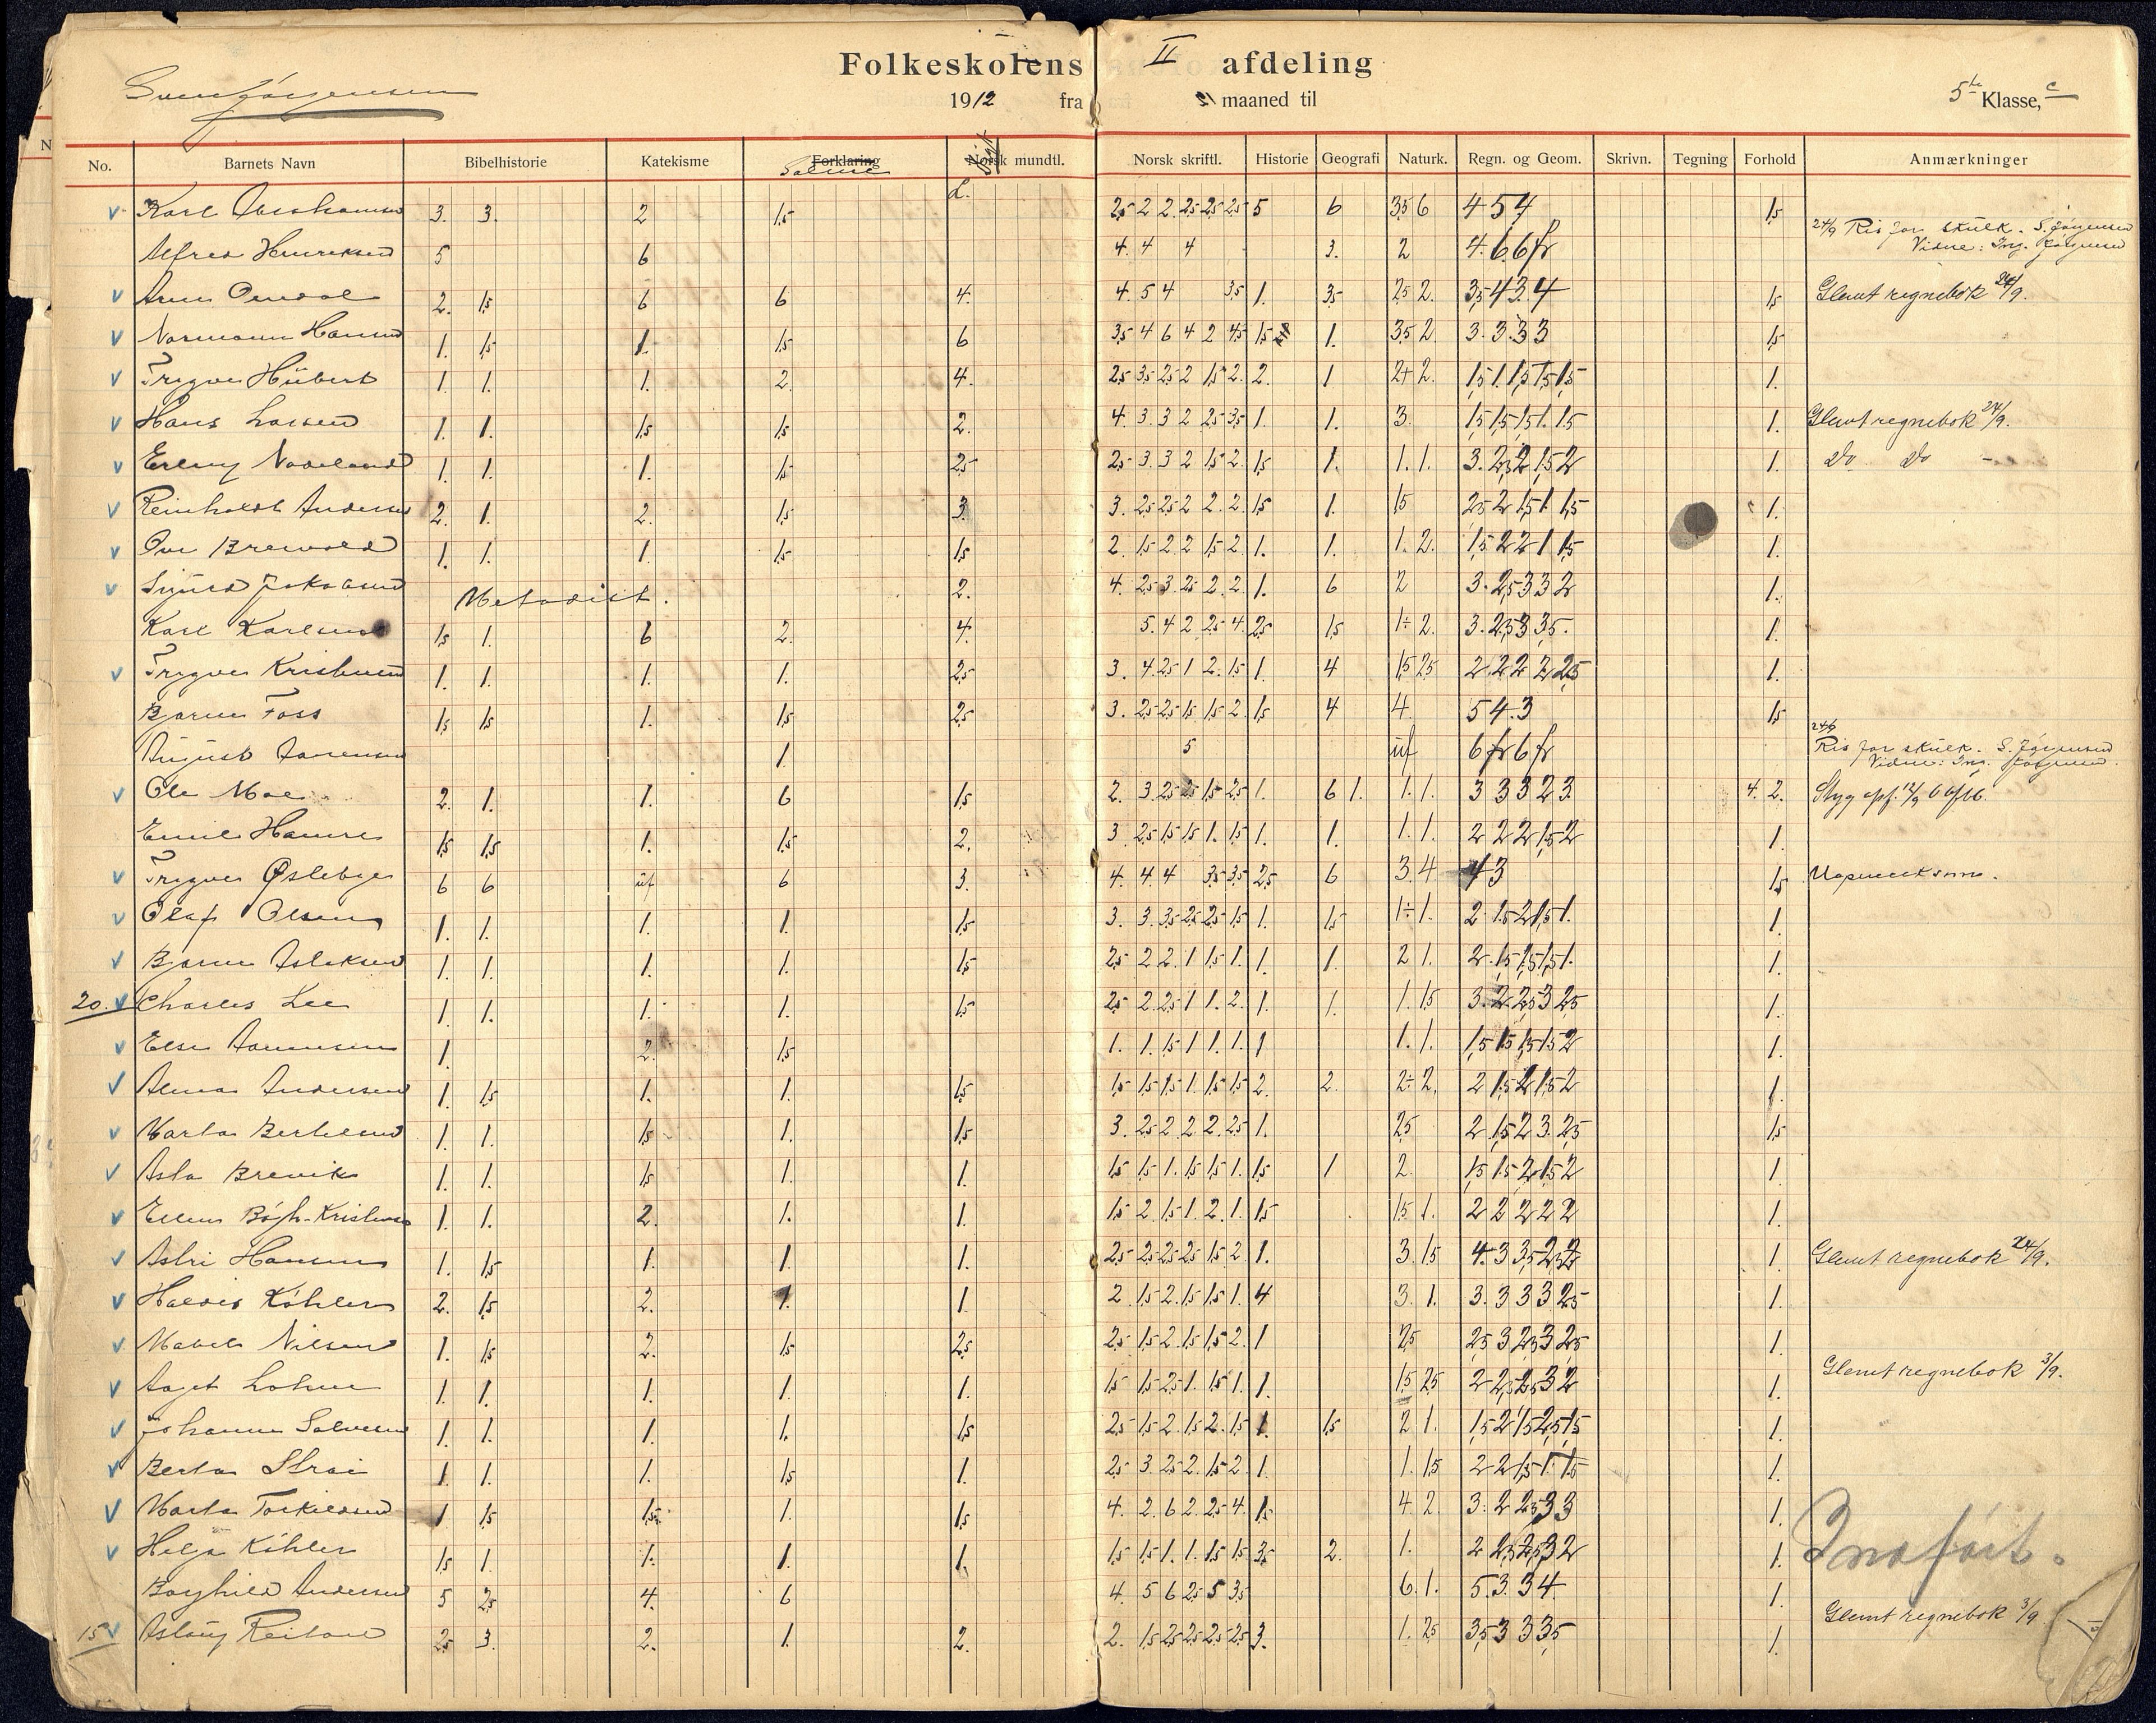 Folkeskolens II afdeling
Sven Jørgensen
1912 fra maaned til
5te Klasse, c
No. Barnets Navn Bibelhistorie Katekisme Forklaring Norsk mundtl. Norsk skriftl. Historie Geografi Naturk. Regn. og Geom. Skrivn. Tegning Forhold Anmærkninger
Salme
v Karl Abrahamsen 3. 3. 2 1,5 2,5 2 2 2,5 2,5 2,5 5 6 3,5 6 4 5 4 1,5
24/9 Ris for skulk. S. Jørgensen
Vidne: Ing. Jørgensen
Alfred Henriksen 5 6 4. 4 4 3. 2 4. 6 6 fr
v Arne Omdal 2. 1,5 6 6 4. 4. 5 4 3,5 1. 3,5 2,5 2. 3,5 4 3 4 1,5 Glemt regnebok 24/9.
v Normann Hansen 1. 1,5 1. 1,5 6 3,5 4 6 4 2 4,5 1,5 1. 3,5 2 3. 3. 3 3 1,5
v Trygve Hübert 1. 1. 1. 2. 4. 2,5 3,5 2,5 2 1,5 2. 2. 1 2+ 2. 1,5 1. 1,5 1,5 1,5 1.
v Hans Larsen 1. 1. 1,5 1,5 2. 4. 3. 3 2 2,5 3,5 1. 1. 3. 1,5 1,5 1,5 1. 1,5 1. Glemt regnebok 24/9.
v Erling Nodeland 1. 1. 1. 1,5 2,5 2,5 3. 3 2 1,5 2. 1,5 1. 1. 1. 3. 2,5 2 1,5 2 1. Do Do –
v Reinholdt Andersen 2. 1. 2. 1,5 3. 3. 2,5 2,5 2 2. 2. 1,5 1. 1,5 2,5 2 1,5 1. 1,5 1.
v Ove Brevold 1. 1. 1. 1,5 1,5 2. 1,5 2. 2 1,5 2. 1. 1. 1. 2. 1,5 2 2 1 1,5 1.
v Sigurd Jakobsen Metodist. 2. 4. 2,5 3. 2,5 2. 2. 1. 6 2 3. 2,5 3 3 2 1.
Karl Karlsen 1,5 1. 6 2. 4. 5. 4 2 2,5 4. 2,5 1,5 1÷ 2. 3. 2,5 3 3,5. 1.
v Trygve Kristensen 1. 1. 1. 1. 2,5 3. 4. 2,5 1 2. 1,5 1. 4 1,5 2,5 2. 2 2 2 2,5 1.
Bjarne Foss 1,5 1,5 1. 1,5 2,5 3. 2,5 2,5 1,5 1,5 2. 1,5 4 4. 5 4. 3 1,5
24/9
Ris for skulk. S. Jørgensen
Vidne: Ing. Jørgensen.
August Aanensen 1. 5 uf 6 fr 6 fr
v Ole Moe 2. 1. 1. 6 1,5 2. 3. 2,5 2,5 1,5 2,5 1. 6 1. 1. 1. 3 3 3 2 3. 4. 2. Styg opf. 12/9
Emil Hamre 1,5 1,5 1. 1,5 2. 3 2,5 1,5 1,5 1. 1,5 1. 1. 1. 1. 2 2 2 1,5 2 1.
v Trygve Oslebye 6 6 uf 6 3. 4. 4. 4 3,5 3,5 2,5 6 3. 4 4 3 1,5 Uopmerksom.
v Olaf Olsen 1. 1. 1. 1. 1,5 3. 3. 3,5 2,5 2,5 1,5 1. 1,5 1÷ 1. 2. 1,5 2 1,5 1. 1.
v Bjarne Aslaksen 1. 1. 1. 1. 1,5 2,5 2 2. 1 1,5 1. 1. 1. 2 1. 2. 1,5 1,5 1,5 1. 1.
20. v Charles Lee 1. 1. 1. 1. 1,5 2,5 2. 2,5 1 1. 2. 1. 1. 1. 1,5 3. 2. 2,5 3 2,5 1.
v Else Aanensen 1. 2. 1,5 1. 1. 1,5 1 1. 1. 1 1. 1. 1,5 1,5 1,5 1,5 2 1.
v Alma Andersen 1. 1,5 1. 1. 1,5 1,5 1,5 1,5 1. 1,5 1,5 2. 2. 2÷ 2. 2 1,5 2 1,5 2 1.
v Marta Bertelsen 1. 1. 1,5 1. 1,5 3. 2,5 2 2 2. 2,5 1. 2,5 2 1,5 2 3. 2,5 1,5
v Asta Brevik 1. 1. 1,5 1. 1. 1,5 1,5 1. 1,5 1,5 1. 1,5 1 2. 1,5 1,5 2 1,5 2 1.
v Ellen Bøgh-Kristensen 1. 1. 2. 1. 1. 1,5 2. 1,5 1. 2. 1. 1,5 1,5 1. 2 2 2 2 2 1.
v Astri Hansen 1. 1,5 1. 1. 1. 2,5 2,5 2,5 2,5 1,5 2 1. 3. 1,5 4. 3 3,5 2,5 2 1. Glemt regnebok 24/9.
v Haldis Köhler 2. 1,5 2. 1. 1. 2. 1,5 2. 1,5 1,5 1. 4 3. 1. 3. 3 3 3 2,5 1.
v Mabel Nilsen 1. 1,5 2. 1,5 2,5 2,5 1,5 2. 1,5 1,5 2. 1 2,5 2,5 3 2,5 3 2,5 1.
v Aagot Lohne 1. 1. 1. 1. 1. 1,5 1,5 2,5 1. 1,5 1. 1. 1,5 2,5 2 2,5 2,5 3 2 1. Glemt regnebok 3/9.
v Johanne Salvesen 1. 1. 1. 1. 1,5 2,5 1,5 2. 1,5 2. 1,5 1. 1,5 2 1. 1,5 2 1,5 2,5 1,5 1.
v Berta Strai 1. 1. 1. 1,5 1. 2,5 3. 2,5 2. 1,5 2. 1. 1. 1,5 2 2 1,5 1. 1,5 1.
v Marta Torkildsen 1 1,5 1,5 1. 1,5 4. 2. 6 2. 2,5 4. 1,5 4. 2. 3. 2 2,5 3 3 1.
v Helga Köhler 1,5 1. 1. 1. 1. 1,5 1,5 1. 1. 1,5 1,5 3,5 2. 1. 2 2,5 2,5 3 2 1. Indført.
Borghild Andersen 5 2,5 4. 6 4. 5 6 2,5 5 3,5 6. 1. 5. 3. 3 4. 1.
15 v Aslaug Reitan 2,5 3. 2. 1. 2. 2. 1,5 2,5 2,5 2,5 2,5 3. 1. 2,5 3,5 3 3 3,5 1. Glemt regnebok 3/9